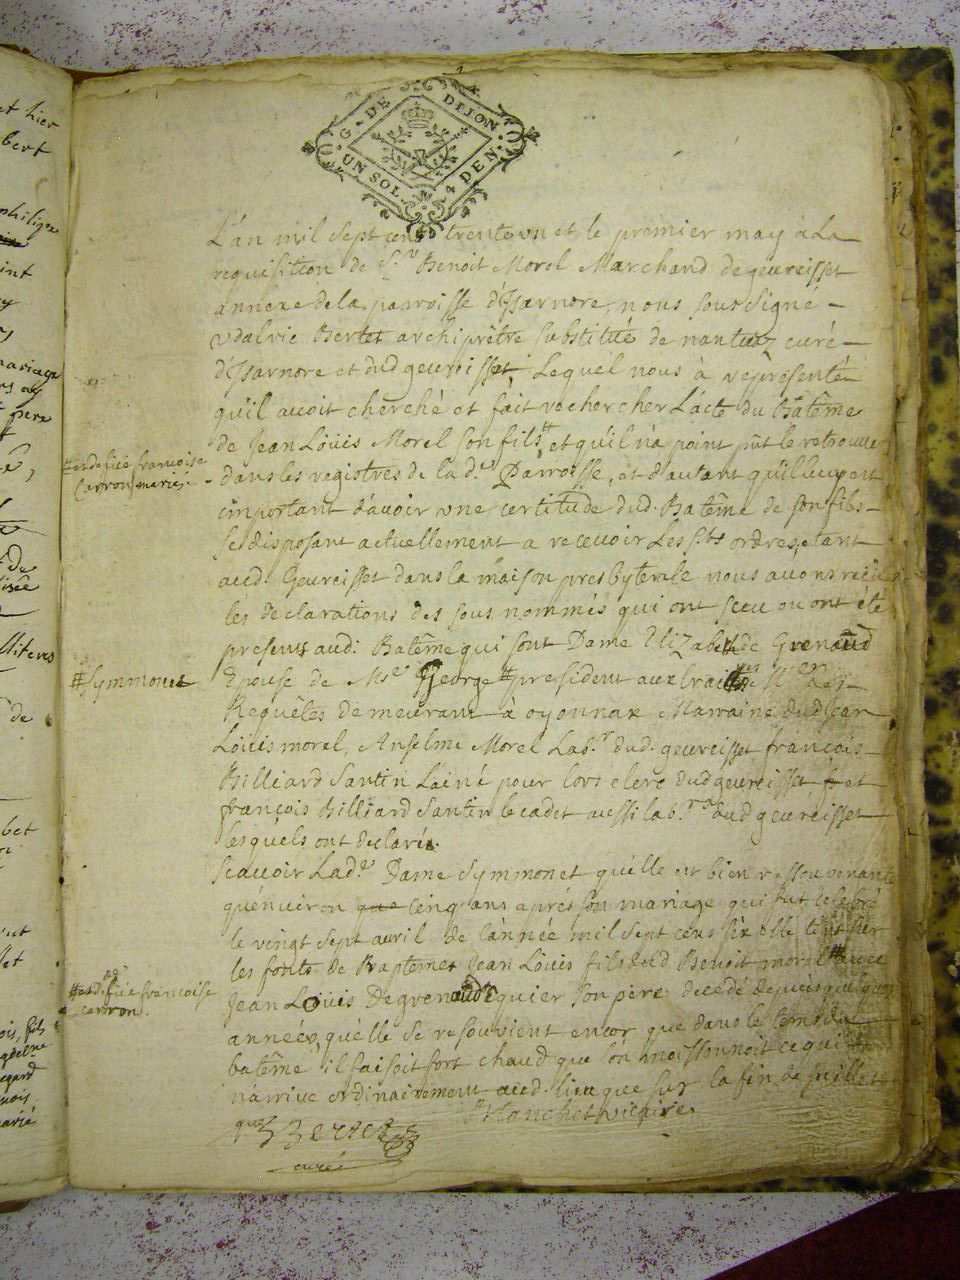 G. DE DIJON
UN SOL. 4 DEN.
L'an mil sept cens trente un et le premier may à La
requisition de S.r Benoit Morel Marchand de geureisset
annexe de la parroisse d'Isarnore, nous soussigné
Udalric Bertet archiprêtre substitué de nantua, curé
d'Isarnore et dud geureisset, Lequel nous à représenté
qu'il avoit cherché et fait rechercher L'acte du Batême
de Jean Loüis Morel son fils # et qu'il n'a point pût le retrouver
# et de fiüe françoise
Carron mariés
dans les registres de lad.e Parroisse, et d'autant qu'il luy est
important d'avoir une certitude dud. Batême de son fils
se disposant actuellement a recevoir Les s.ts ordres, etant
aud. Geureisset dans la maison presbyterale nous avons reçu
les declarations des sous nommés qui ont sceu ou ont été
presents aud: Batême qui sont Dame Elizabeth de Grenaud
# Symmonet
Epouse de M.r George # president aux traittes
Requêtes demeurant à oyonnax Marraine dud Jean
Loüis morel, Anselme Morel Lab.r dud. geureisset, françois
Billiard Santin L'ainé pour lors clerc dud geureisset et
françois Billiard Santin le cadet aussi lab.r aud geureisset
lesquels ont declaré.
Scavoir Lad.e Dame Symmonet qu'elle est bien ressouvenante
qu'enuiron que cinq ans aprés son mariage qui fut celebré
le vingt sept auril de l'année mil sept cens six elle tint sur
les fonts de Baptemes Jean Loüis fils dud Benoit morel # avec
# et de fiüe françoise
carron.
Jean Loüis De grenaud Equier son pere decedé depuis quelques
années, qu'elle se resouvient encor que dans le tems dud
batême il faisoit fort chaud que l'on moissonnoit ce qui
n'arrive ordinairement aud. lieu que sur la fin de juillet
Blanchet vicaire.
Bertet
curé